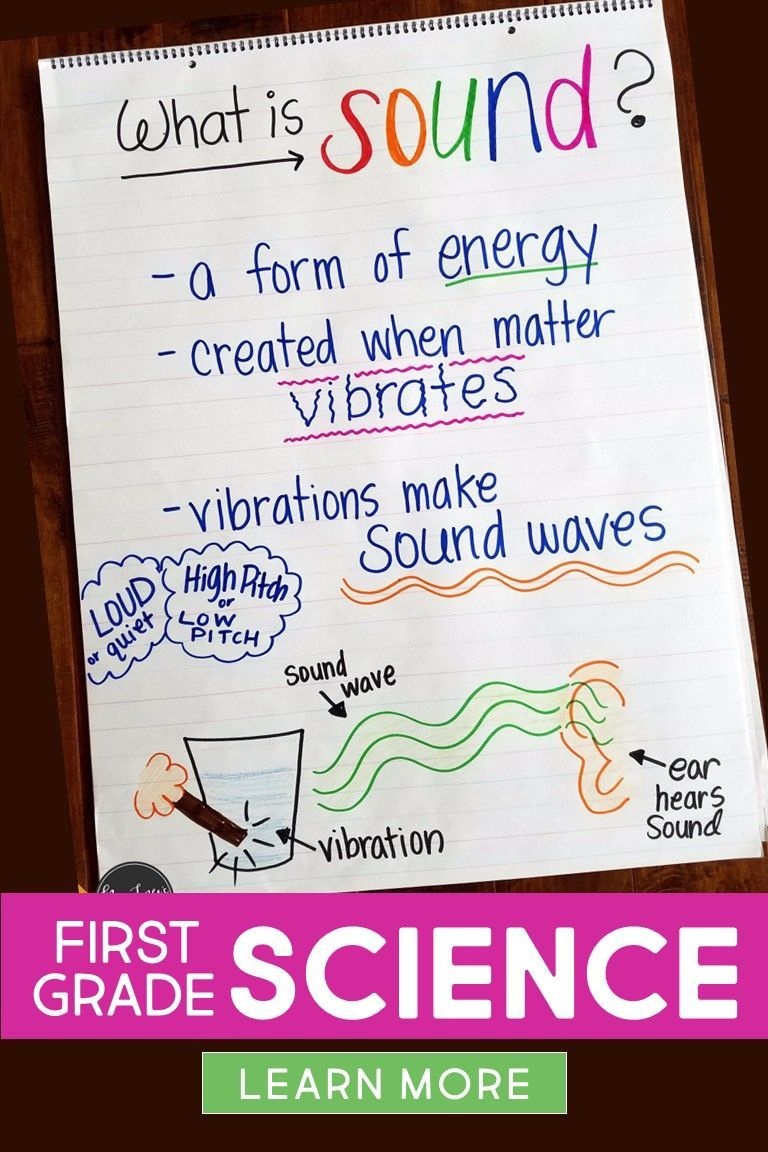 What is sound?
- a form of energy
- created when matter
vibrates
- vibrations make
Sound waves
LOUD
or quiet
High Pitch
or
LOW
PITCH
sound
wave
vibration
ear
hears
Sound
FIRST
GRADE
SCIENCE
LEARN MORE